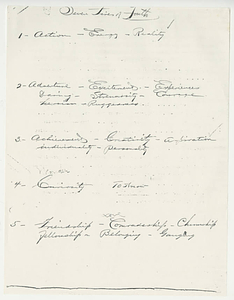 Seven Lives of Youth
1 - Action - Energy - Reality
2 - Adventure - Excitement - Experiences
Daring - Strenuosity - Courage
Heroism - Ruggedness
3 - Achievement - Creativity - Aspiration
Individuality - Personality
4 - Curiosity To Know
5 - Friendship - Comradeship - Chumship
Fellowship - Belonging -